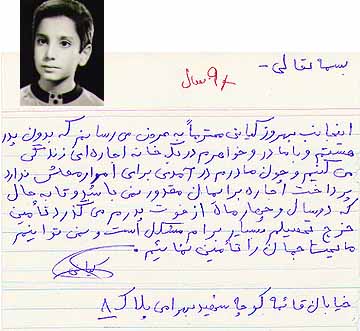 بسمه تعالی -
۹ سال
اینجانب بهروز کیانی محترماً به عرض می رسانم که بدون پدر
هستیم و با مادر و خواهرم در یک خانه اجاره ای زندگی
می کنیم و چون مادرم درآمدی برای امور معاش ندارد
پرداخت اجاره برایمان مقدور نمی باشد و تا به حال
که دو سال و چهار ماه از فوت پدرم می گذرد تأمین
خرج تحصیلم بسیار برایم مشکل است و نمی توانیم
مایحتاجمان را تأمین نمائیم .
خیابان قائم کوچه سفید سرامی پلاک ۸